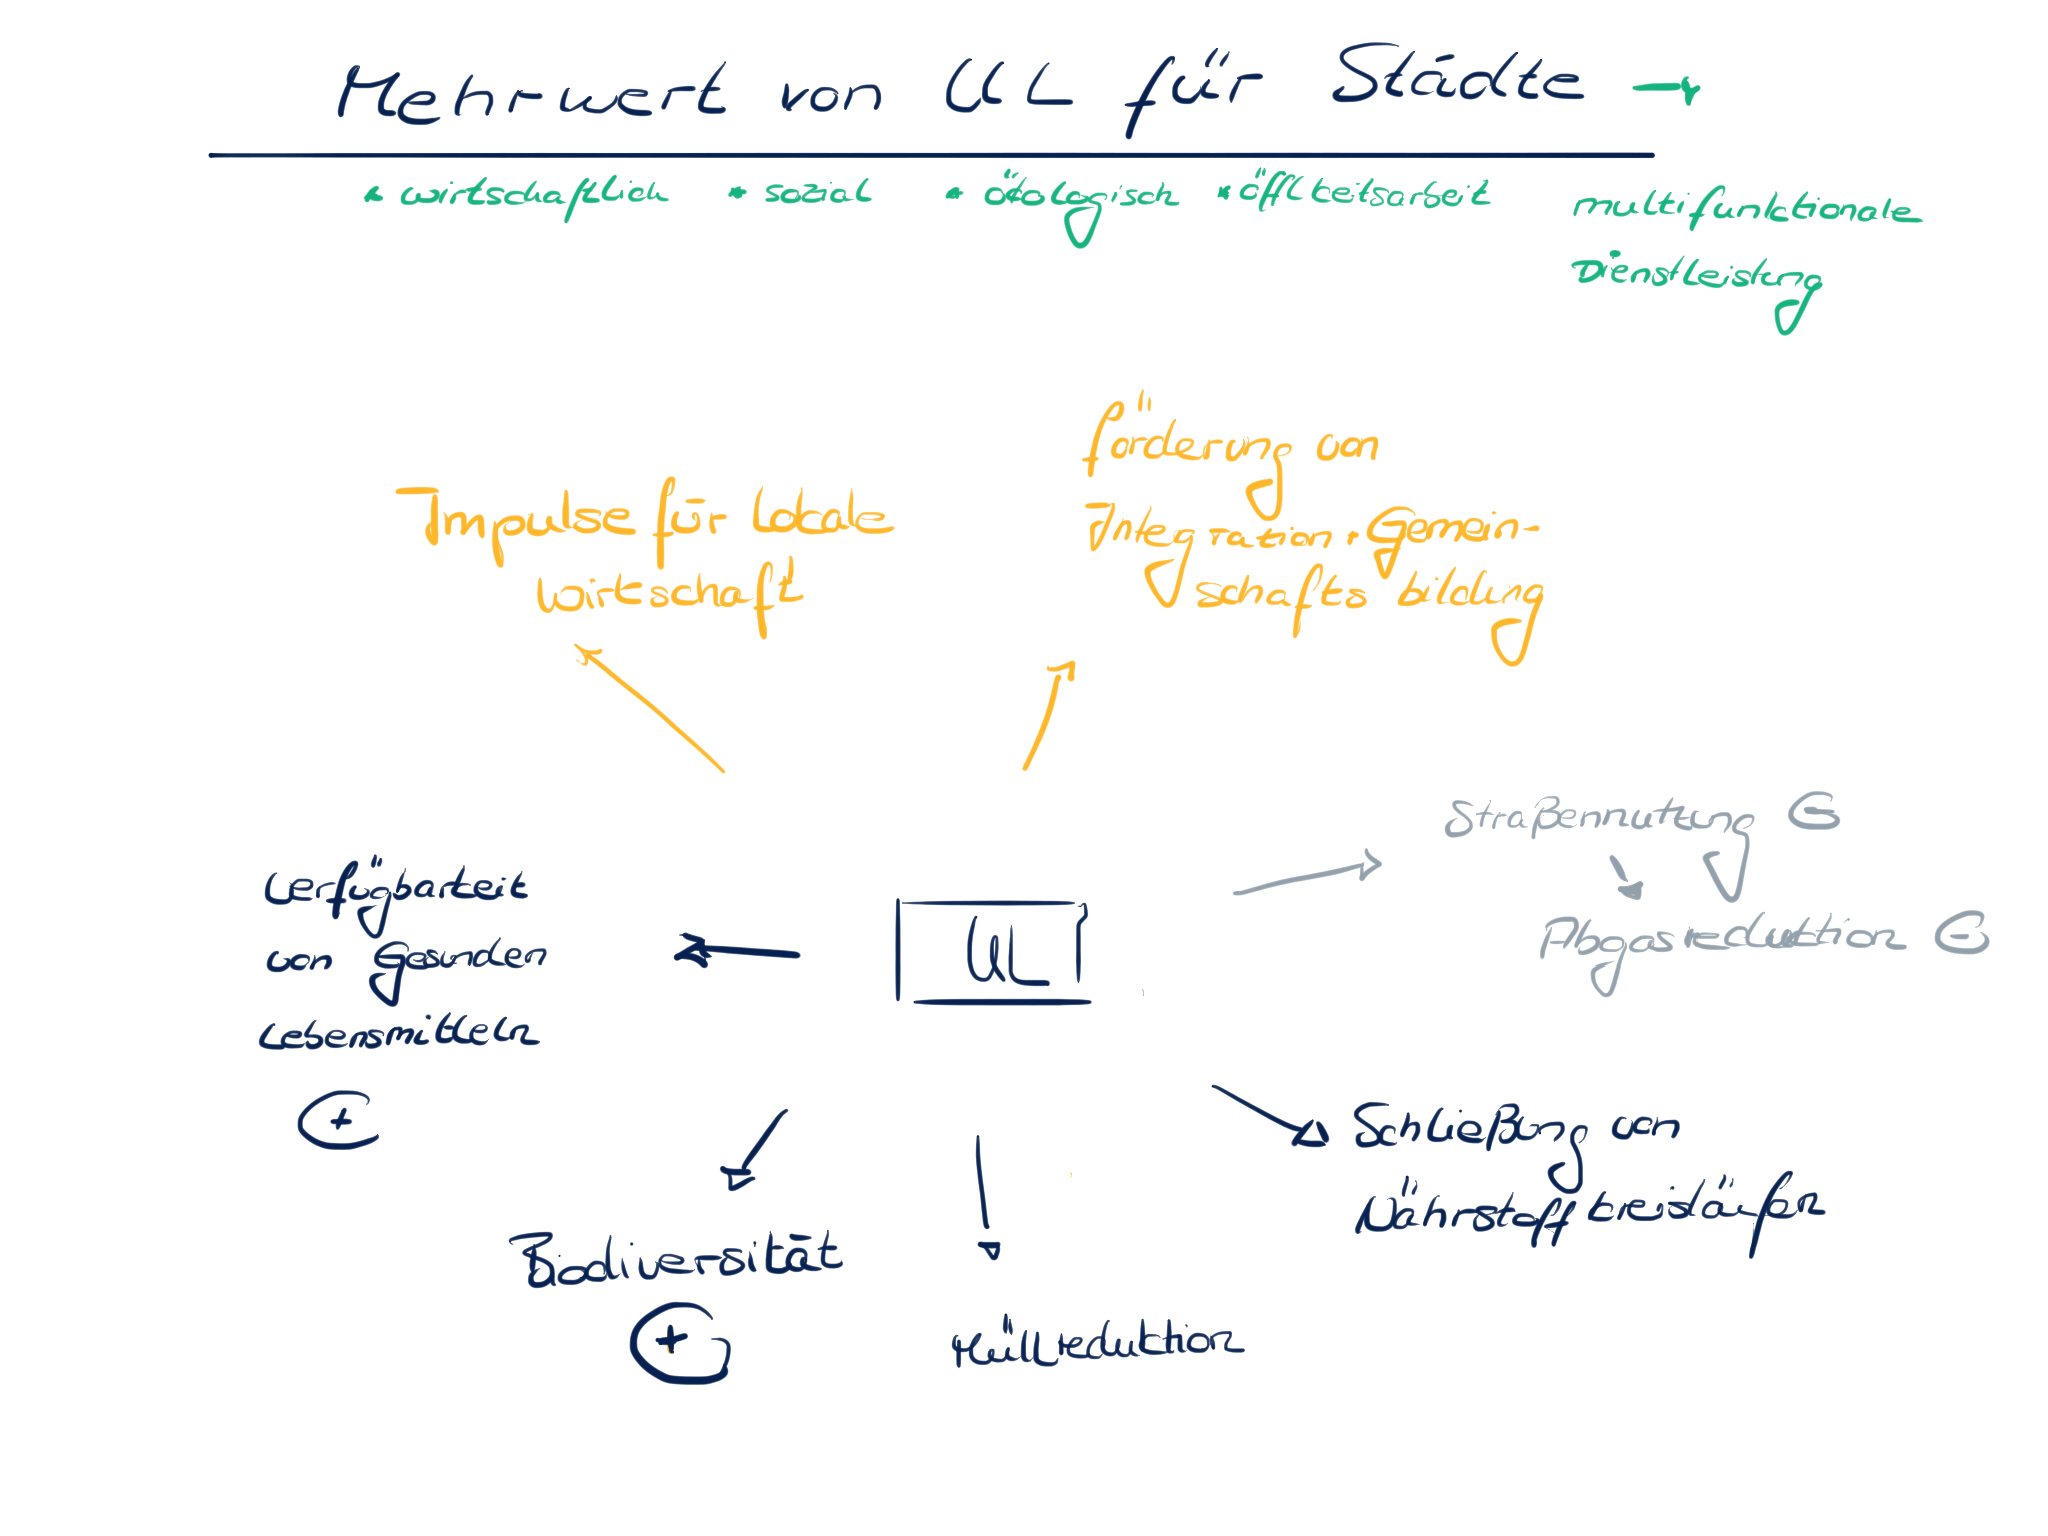 Mehrwert von UL für Städte →
* wirtschaftlich * sozial * ökologisch * öfflkeitsarbeit
multifunktionale
Dienstleistung
Impulse für lokale
wirtschaft
förderung von
Integration + Gemein-
schafts bildung
Straßennutzung ⊖
Abgasreduktion ⊖
Verfügbarkeit
von Gesunden
Lebensmitteln
+
UL
Schließung von
Nährstoffkreisläufen
Biodiversität
+
Müllreduktion